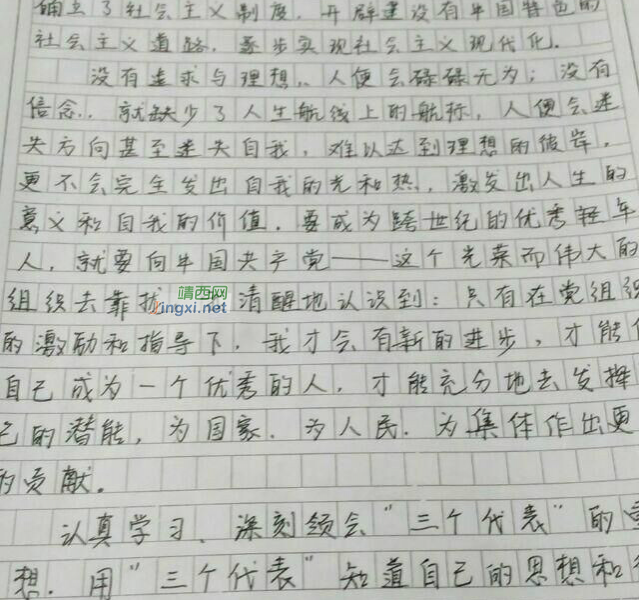 确立了社会主义制度，开辟建设有中国特色的
社会主义道路，逐步实现社会主义现代化。
没有追求与理想，人便会碌碌无为；没有
信念，就缺少了人生航线上的航标，人便会迷
失方向甚至迷失自我，难以达到理想的彼岸，
更不会完全发出自我的光和热，激发出人生的
意义和自我的价值。要成为跨世纪的优秀轻年
人，就要向中国共产党——这个光荣而伟大的
组织去靠拢 清醒地认识到：只有在党组织
靖西网
jingxi.net
的激励和指导下，我才会有新的进步，才能
自己成为一个优秀的人，才能充分地去发挥
己的潜能，为国家，为人民，为集体作出更
的贡献。
认真学习、深刻领会“三个代表”的
想，用“三个代表”知道自己的思想和